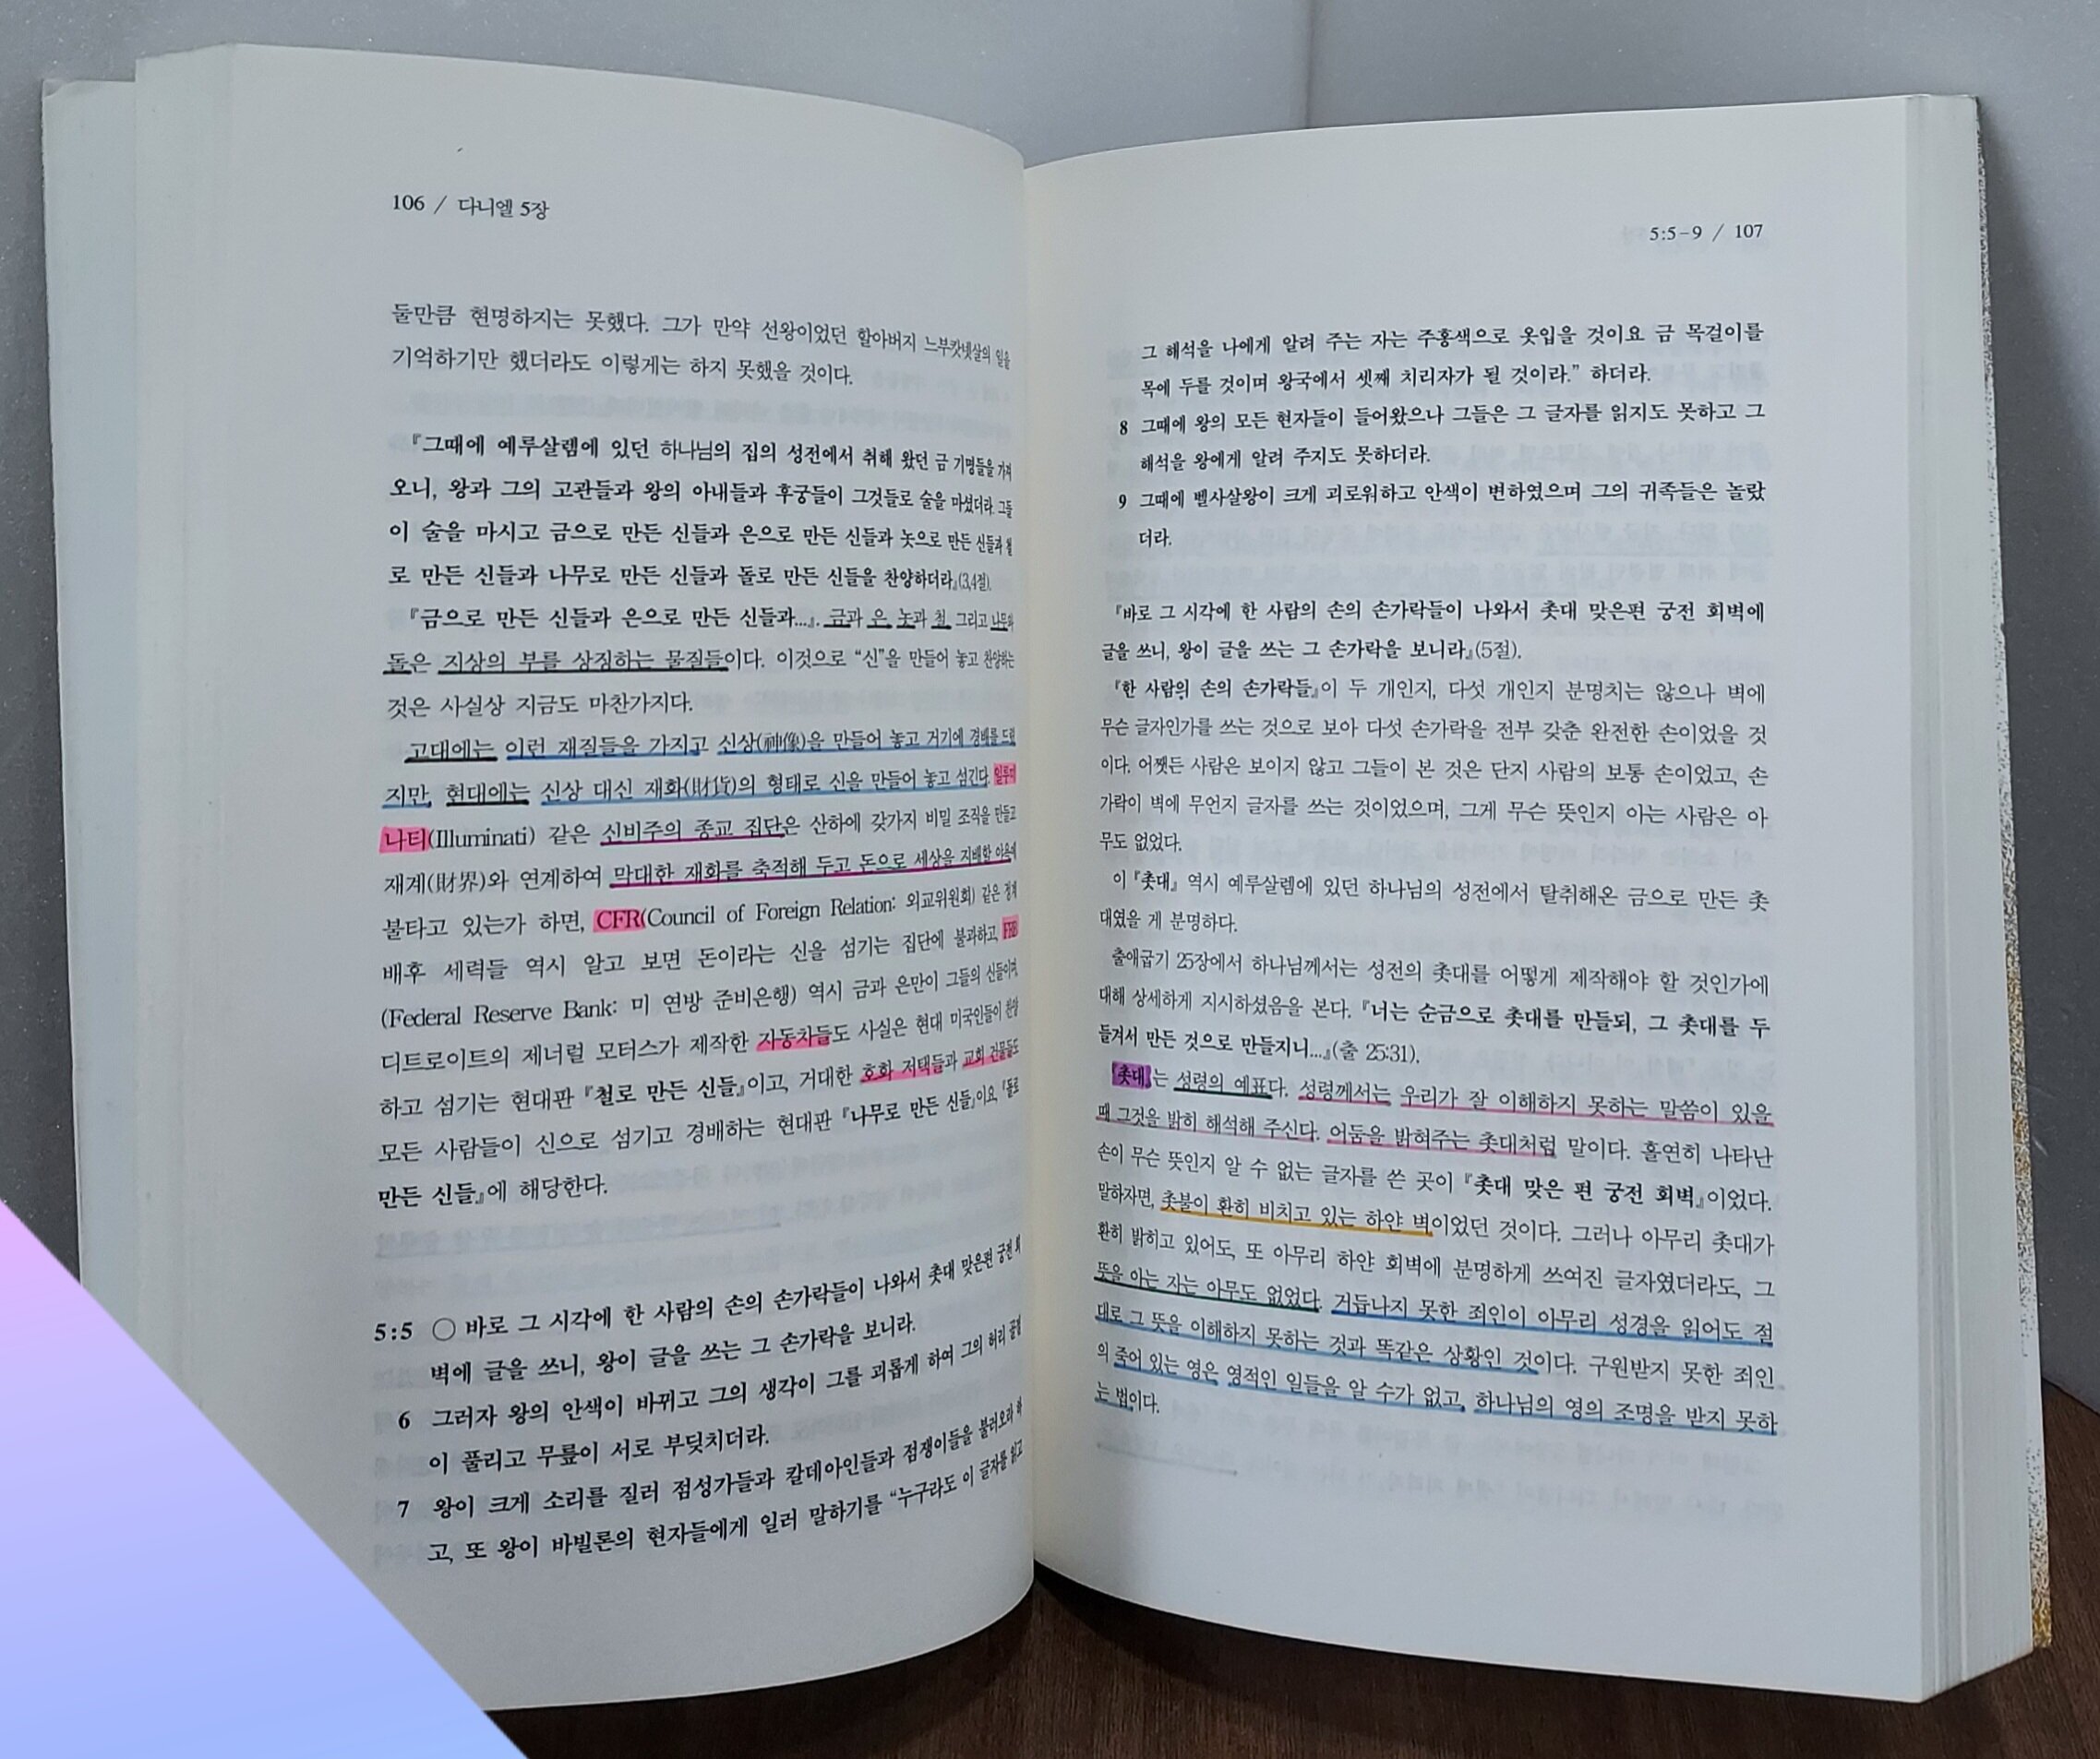 106 / 다니엘 5장
둘만큼 현명하지는 못했다. 그가 만약 선왕이었던 할아버지 느부캇넷살의 일을
기억하기만 했더라도 이렇게는 하지 못했을 것이다.
『그때에 예루살렘에 있던 하나님의 집의 성전에서 취해 왔던 금 기명들을 가져
오니, 왕과 그의 고관들과 왕의 아내들과 후궁들이 그것들로 술을 마셨더라. 그들
이 술을 마시고 금으로 만든 신들과 은으로 만든 신들과 놋으로 만든 신들과 철
로 만든 신들과 나무로 만든 신들과 돌로 만든 신들을 찬양하더라』(3,4절).
『금으로 만든 신들과 은으로 만든 신들과...』. 금과 은, 놋과 철, 그리고 나무와
돌은 지상의 부를 상징하는 물질들이다. 이것으로 “신”을 만들어 놓고 찬양하는
것은 사실상 지금도 마찬가지다.
고대에는 이런 재질들을 가지고 신상(神像)을 만들어 놓고 거기에 경배를 드렸
지만, 현대에는 신상 대신 재화(財貨)의 형태로 신을 만들어 놓고 섬긴다. 일루미
나티(Illuminati) 같은 신비주의 종교 집단은 산하에 갖가지 비밀 조직을 만들고
재계(財界)와 연계하여 막대한 재화를 축적해 두고 돈으로 세상을 지배할 야욕에
불타고 있는가 하면, CFR(Council of Foreign Relation: 외교위원회) 같은 정계
배후 세력들 역시 알고 보면 돈이라는 신을 섬기는 집단에 불과하고, FRB
(Federal Reserve Bank: 미 연방 준비은행) 역시 금과 은만이 그들의 신들이며,
디트로이트의 제너럴 모터스가 제작한 자동차들도 사실은 현대 미국인들이 찬양
하고 섬기는 현대판 『철로 만든 신들』이고, 거대한 호화 저택들과 교회 건물들도
모든 사람들이 신으로 섬기고 경배하는 현대판 『나무로 만든 신들』이요, 『돌로
만든 신들』에 해당한다.
5:5 ○ 바로 그 시각에 한 사람의 손의 손가락들이 나와서 촛대 맞은편 궁전 회
벽에 글을 쓰니, 왕이 글을 쓰는 그 손가락을 보니라.
6 그러자 왕의 안색이 바뀌고 그의 생각이 그를 괴롭게 하여 그의 허리 골절
이 풀리고 무릎이 서로 부딪치더라.
7 왕이 크게 소리를 질러 점성가들과 칼데아인들과 점쟁이들을 불러오라 하
고, 또 왕이 바빌론의 현자들에게 일러 말하기를 “누구라도 이 글자를 읽고
5:5-9 / 107
그 해석을 나에게 알려 주는 자는 주홍색으로 옷입을 것이요 금 목걸이를
목에 두를 것이며 왕국에서 셋째 치리자가 될 것이라.” 하더라.
8 그때에 왕의 모든 현자들이 들어왔으나 그들은 그 글자를 읽지도 못하고 그
해석을 왕에게 알려 주지도 못하더라.
9 그때에 벨사살왕이 크게 괴로워하고 안색이 변하였으며 그의 귀족들은 놀랐
더라.
『바로 그 시각에 한 사람의 손의 손가락들이 나와서 촛대 맞은편 궁전 회벽에
글을 쓰니, 왕이 글을 쓰는 그 손가락을 보니라』(5절).
『한 사람의 손의 손가락들』이 두 개인지, 다섯 개인지 분명치는 않으나 벽에
무슨 글자인가를 쓰는 것으로 보아 다섯 손가락을 전부 갖춘 완전한 손이었을 것
이다. 어쨋든 사람은 보이지 않고 그들이 본 것은 단지 사람의 보통 손이었고, 손
가락이 벽에 무언지 글자를 쓰는 것이었으며, 그게 무슨 뜻인지 아는 사람은 아
무도 없었다.
이 『촛대』 역시 예루살렘에 있던 하나님의 성전에서 탈취해온 금으로 만든 촛
대였을 게 분명하다.
출애굽기 25장에서 하나님께서는 성전의 촛대를 어떻게 제작해야 할 것인가에
대해 상세하게 지시하셨음을 본다. 『너는 순금으로 촛대를 만들되, 그 촛대를 두
들겨서 만든 것으로 만들지니...』(출 25:31).
『촛대』는 성령의 예표다. 성령께서는 우리가 잘 이해하지 못하는 말씀이 있을
때 그것을 밝히 해석해 주신다. 어둠을 밝혀주는 촛대처럼 말이다. 홀연히 나타난
손이 무슨 뜻인지 알 수 없는 글자를 쓴 곳이 『촛대 맞은 편 궁전 회벽』이었다.
말하자면, 촛불이 환히 비치고 있는 하얀 벽이었던 것이다. 그러나 아무리 촛대가
환히 밝히고 있어도, 또 아무리 하얀 회벽에 분명하게 쓰여진 글자였더라도, 그
뜻을 아는 자는 아무도 없었다. 거듭나지 못한 죄인이 아무리 성경을 읽어도 절
대로 그 뜻을 이해하지 못하는 것과 똑같은 상황인 것이다. 구원받지 못한 죄인
의 죽어 있는 영은 영적인 일들을 알 수가 없고, 하나님의 영의 조명을 받지 못하
는 법이다.